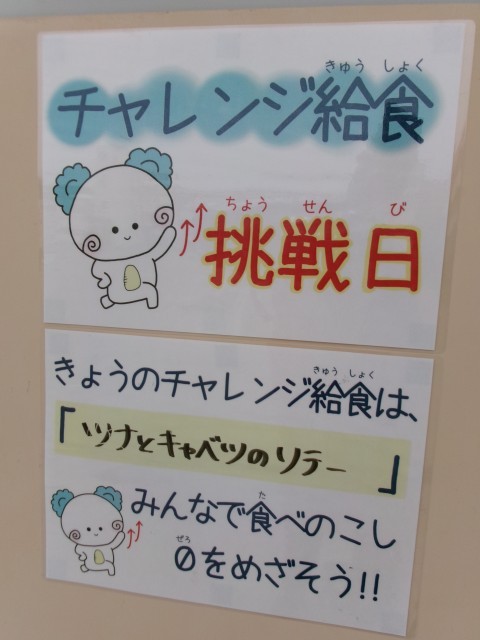 きゅう しょく
チャレンジ給食
ちょう せん び
挑戦日
きゅう しょく
きょうのチャレンジ給食は、
「ツナとキャベツのソテー」
た
みんなで食べのこし
ぜろ
0をめざそう!!